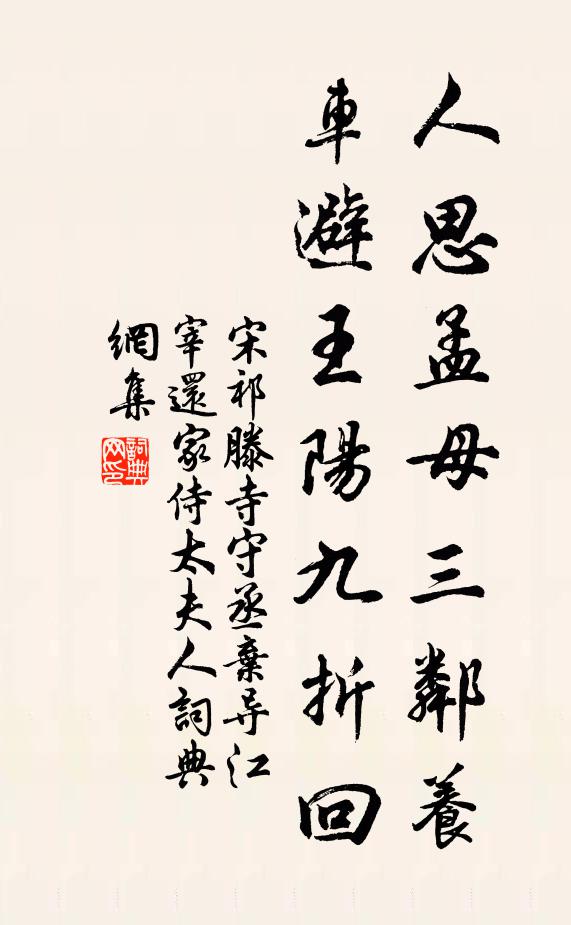 人思孟母三鄰養
車避王陽九折回
宋祁滕寺守丞棄导江
宰還家侍太夫人詞典
網集
詞典
网印